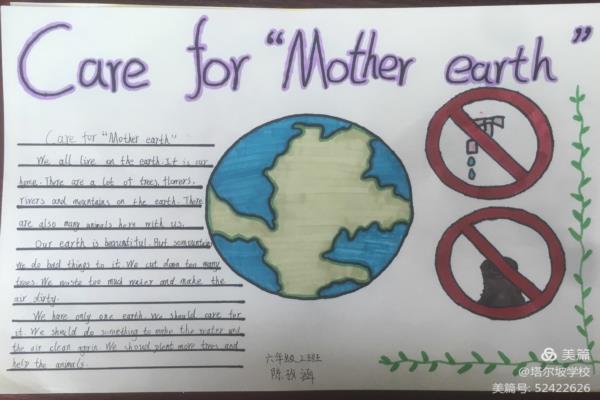 Care for “Mother earth”
Care for "Mother earth"
We all live on the earth. It is our
home. There are a lot of trees, flowers,
rivers and mountains on the earth. There
are also many animals here with us.
Our earth is beautiful. But sometimes
we do bad things to it. We cut down too many
trees. We waste too much water and make the
air dirty.
We have only one earth. We should care for
it. We should do something to make the water and
the air clean again. We should plant more trees and
help the animals.
六年级
陈
美篇
@塔尔坡学校
美篇号: 52422626